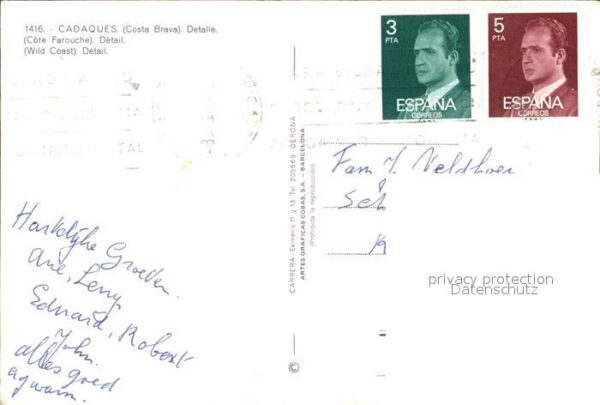 1416. - CADAQUES. (Costa Brava). Detalle.
(Côte Farouche). Dètail.
(Wild Coast). Detail.
3
PTA
ESPAÑA
CORREOS
5
PTA
ESPAÑA
CORREOS
CARRERA, Eximenis 11 y 13. Tel. 205669 - GERONA
ARTES GRAFICAS COBAS, S.A. - BARCELONA
(Prohibida la reproducción)
©
Fam J. Veldhoen
Sch
K
privacy protection
Datenschutz
Hartelijke Groeten
Arie, Leny
Eduard, Robert
John.
alles goed